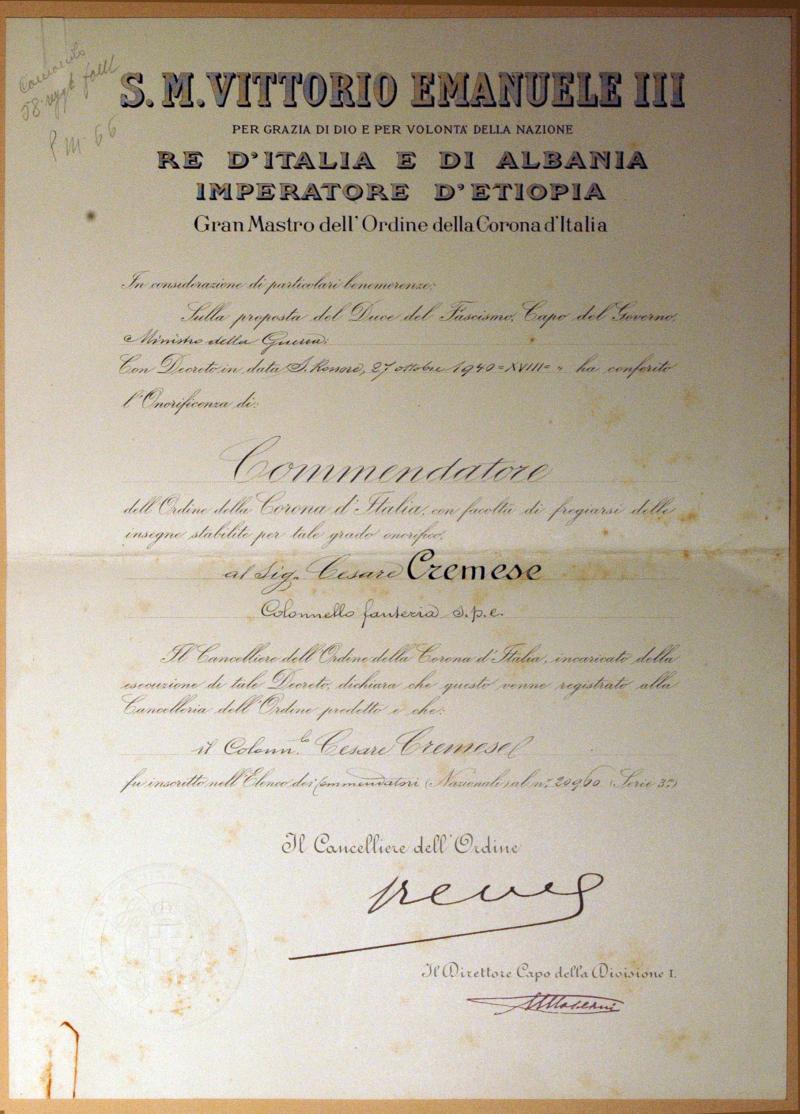 Comando
58 regg
P.M. 66
S. M. VITTORIO EMANUELE III
PER GRAZIA DI DIO E PER VOLONTA' DELLA NAZIONE
RE D'ITALIA E DI ALBANIA
IMPERATORE D'ETIOPIA
Gran Mastro dell'Ordine della Corona d'Italia
In considerazione di particolari benemerenze;
Sulla proposta del Duce del Fascismo, Capo del Governo,
Ministro della Guerra;
Con Decreto in data S. Rossore, 27 ottobre 1940=XVIII= ha conferito
l'Onorificenza di:
Commendatore
dell'Ordine della Corona d'Italia, con facoltà di fregiarsi delle
insegne stabilite per tale grado onorifico,
al Sig. Cesare Cremese
Colonnello fanteria s.p.e.
Il Cancelliere dell'Ordine della Corona d'Italia, incaricato della
esecuzione di tale Decreto, dichiara che questo venne registrato alla
Cancelleria dell'Ordine predetto e che:
il Colonn.lo Cesare Cremese
fu inscritto nell'Elenco dei Commendatori (Nazionali) al n.° 20960 (Serie 3ª)
Il Cancelliere dell'Ordine
Il Direttore Capo della Divisione I.